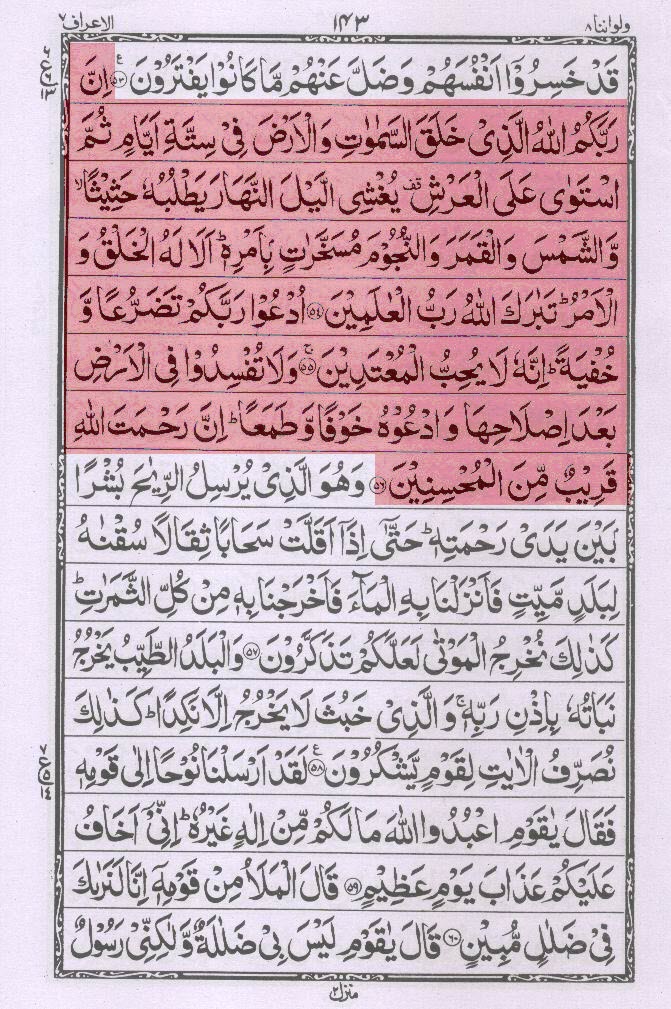 ولواننا ۸ ۱۴۳ الاعراف ۷
قَدْ خَسِرُوْۤا اَنْفُسَهُمْ وَضَلَّ عَنْهُمْ مَّا كَانُوْا يَفْتَرُوْنَ ﴿۵۳﴾ اِنَّ
رَبَّكُمُ اللّٰهُ الَّذِىْ خَلَقَ السَّمٰوٰتِ وَالْاَرْضَ فِىْ سِتَّةِ اَيَّامٍ ثُمَّ
اسْتَوٰى عَلَى الْعَرْشِ ۟ يُغْشِى الَّيْلَ النَّهَارَ يَطْلُبُهٗ حَثِيْثًا ۙ
وَّالشَّمْسَ وَالْقَمَرَ وَالنُّجُوْمَ مُسَخَّرٰتٍۢ بِاَمْرِهٖ ؕ اَلَا لَهُ الْخَلْقُ وَ
الْاَمْرُ ؕ تَبٰرَكَ اللّٰهُ رَبُّ الْعٰلَمِيْنَ ﴿۵۴﴾ اُدْعُوْا رَبَّكُمْ تَضَرُّعًا وَّ
خُفْيَةً ؕ اِنَّهٗ لَا يُحِبُّ الْمُعْتَدِيْنَ ﴿۵۵﴾ ۚ وَلَا تُفْسِدُوْا فِى الْاَرْضِ
بَعْدَ اِصْلَاحِهَا وَادْعُوْهُ خَوْفًا وَّطَمَعًا ؕ اِنَّ رَحْمَتَ اللّٰهِ
قَرِيْبٌ مِّنَ الْمُحْسِنِيْنَ ﴿۵۶﴾ وَهُوَ الَّذِىْ يُرْسِلُ الرِّيٰحَ بُشْرًۢا
بَيْنَ يَدَىْ رَحْمَتِهٖ ؕ حَتّٰۤى اِذَاۤ اَقَلَّتْ سَحَابًا ثِقَالًا سُقْنٰهُ
لِبَلَدٍ مَّيِّتٍ فَاَنْزَلْنَا بِهِ الْمَآءَ فَاَخْرَجْنَا بِهٖ مِنْ كُلِّ الثَّمَرٰتِ ؕ
كَذٰلِكَ نُخْرِجُ الْمَوْتٰى لَعَلَّكُمْ تَذَكَّرُوْنَ ﴿۵۷﴾ وَالْبَلَدُ الطَّيِّبُ يَخْرُجُ
نَبَاتُهٗ بِاِذْنِ رَبِّهٖ ۚ وَالَّذِىْ خَبُثَ لَا يَخْرُجُ اِلَّا نَكِدًا ؕ كَذٰلِكَ
نُصَرِّفُ الْاٰيٰتِ لِقَوْمٍ يَّشْكُرُوْنَ ﴿۵۸﴾ لَقَدْ اَرْسَلْنَا نُوْحًا اِلٰى قَوْمِهٖ
فَقَالَ يٰقَوْمِ اعْبُدُوا اللّٰهَ مَا لَكُمْ مِّنْ اِلٰهٍ غَيْرُهٗ ؕ اِنِّىْۤ اَخَافُ
عَلَيْكُمْ عَذَابَ يَوْمٍ عَظِيْمٍ ﴿۵۹﴾ قَالَ الْمَلَاُ مِنْ قَوْمِهٖۤ اِنَّا لَنَرٰىكَ
فِىْ ضَلٰلٍ مُّبِيْنٍ ﴿۶۰﴾ قَالَ يٰقَوْمِ لَيْسَ بِىْ ضَلٰلَةٌ وَّلٰكِنِّىْ رَسُوْلٌ
منزل ۲